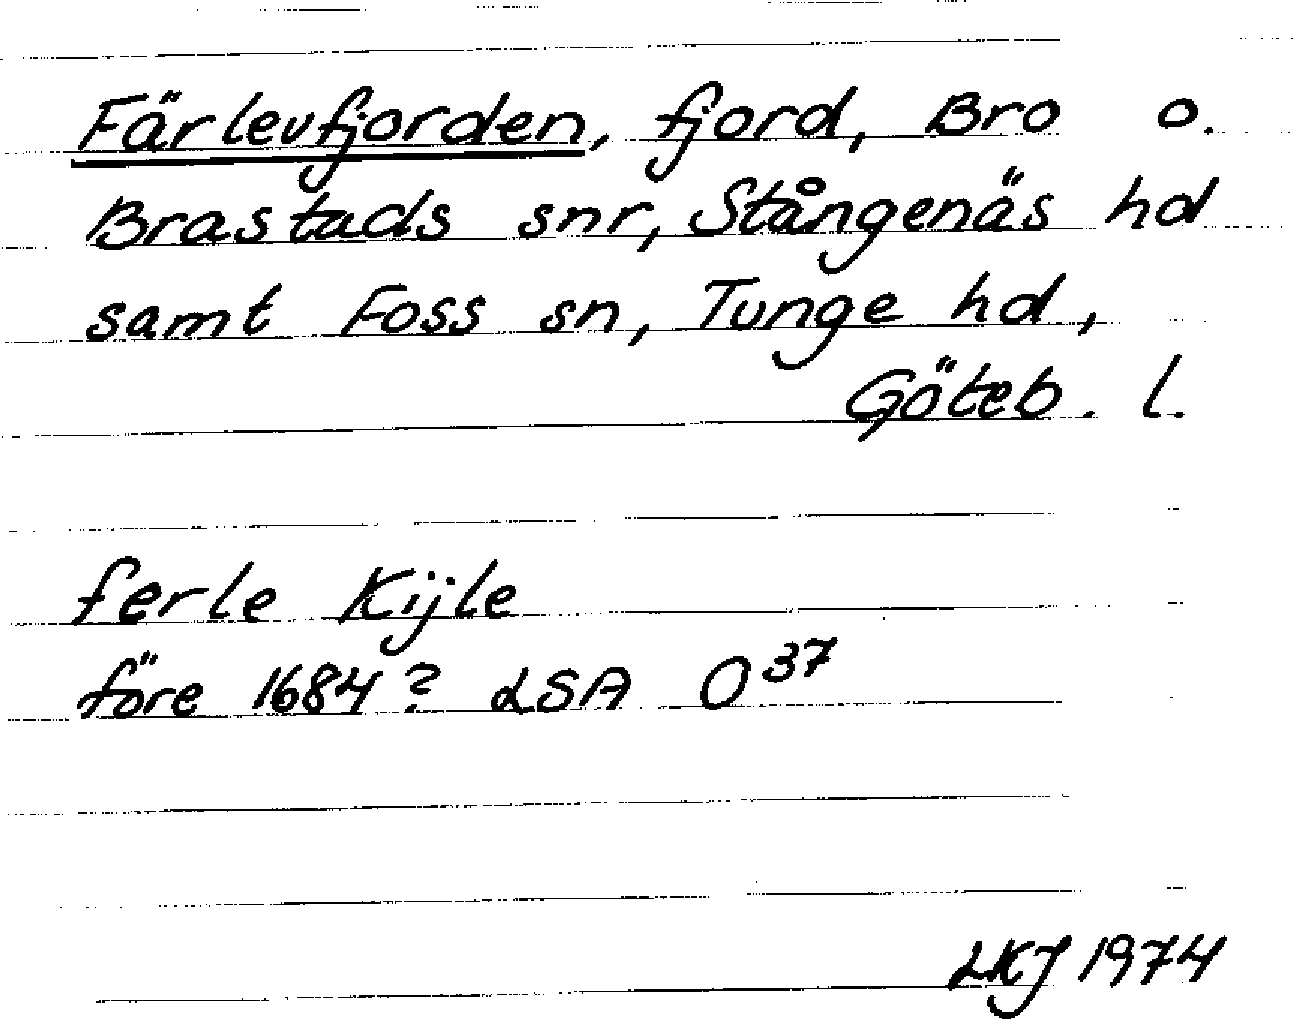 Färlevfjorden, fjord, Bro o.
Brastads snr, Stångenäs hd
samt Foss sn, Tunge hd,
Göteb. l.
ferle Kijle
före 1684? LSA O³⁷
LKJ 1974